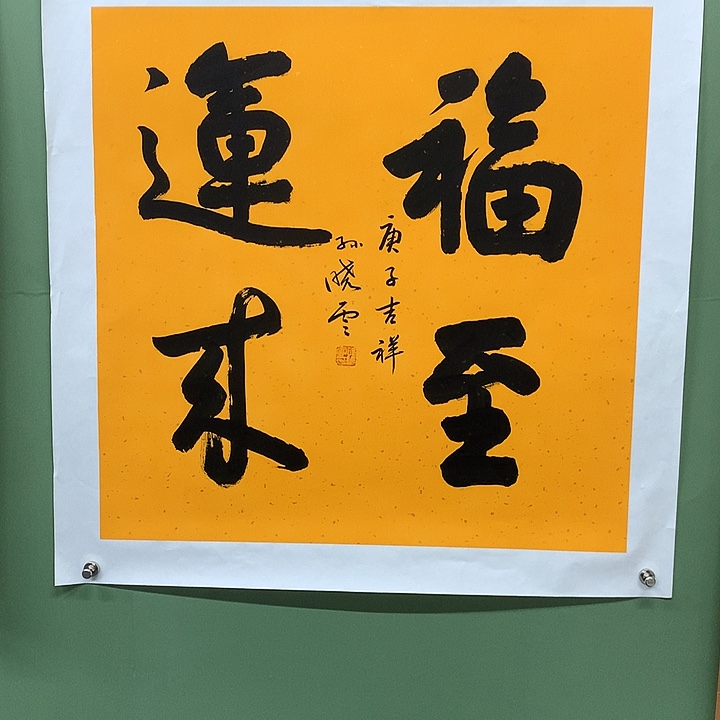 福至
運来
庚子吉祥
孙晓雲